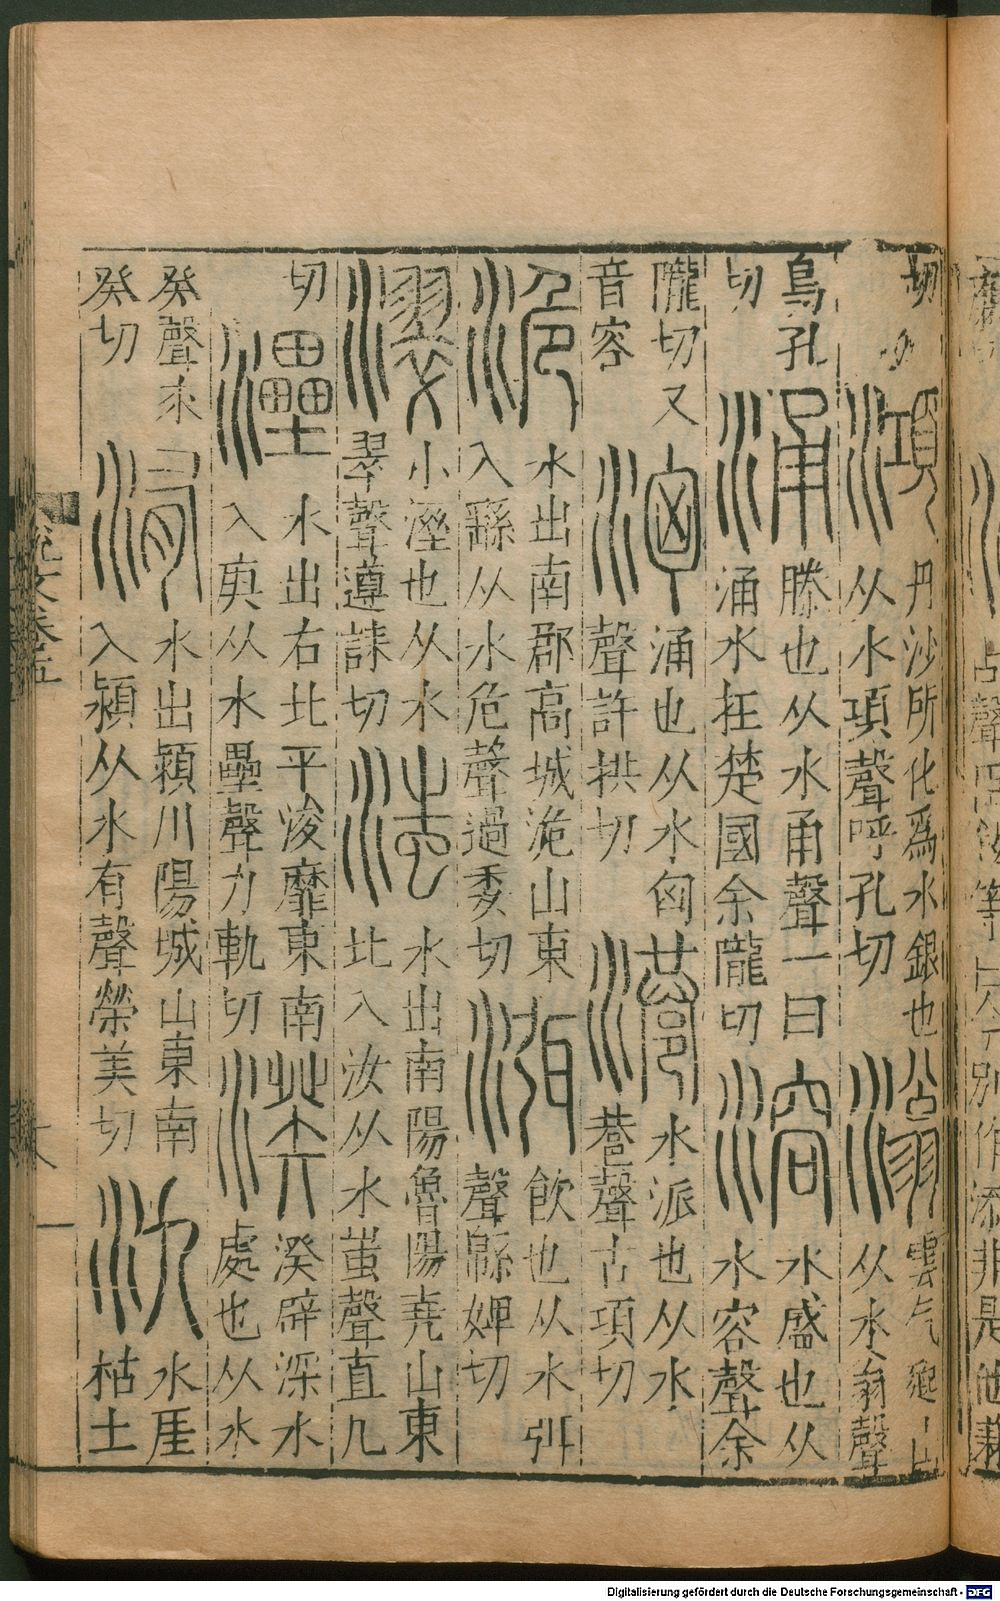 切 澒 丹沙所化爲水銀也从水項聲呼孔切 滃 雲气起也从水翁聲
烏孔切 涌 滕也从水甬聲一曰涌水在楚國余隴切 溶 水盛也从水容聲余
隴切又音容 洶 涌也从水匈聲許拱切 港 水派也从水巷聲古項切
洈 水出南郡高城洈山東入繇从水危聲過委切 渳 飲也从水弭聲緜婢切
濢 小溼也从水翠聲遵誄切 滍 水出南陽魯陽堯山東北入汝从水蚩聲直几
切 灅 水出右北平浚靡東南入庚从水壘聲力軌切 湀 湀辟深水處也从水
癸聲求癸切 洧 水出潁川陽城山東南入潁从水有聲榮美切 氿 水厓枯土
說文卷五
Digitalisierung gefördert durch die Deutsche Forschungsgemeinschaft - DFG